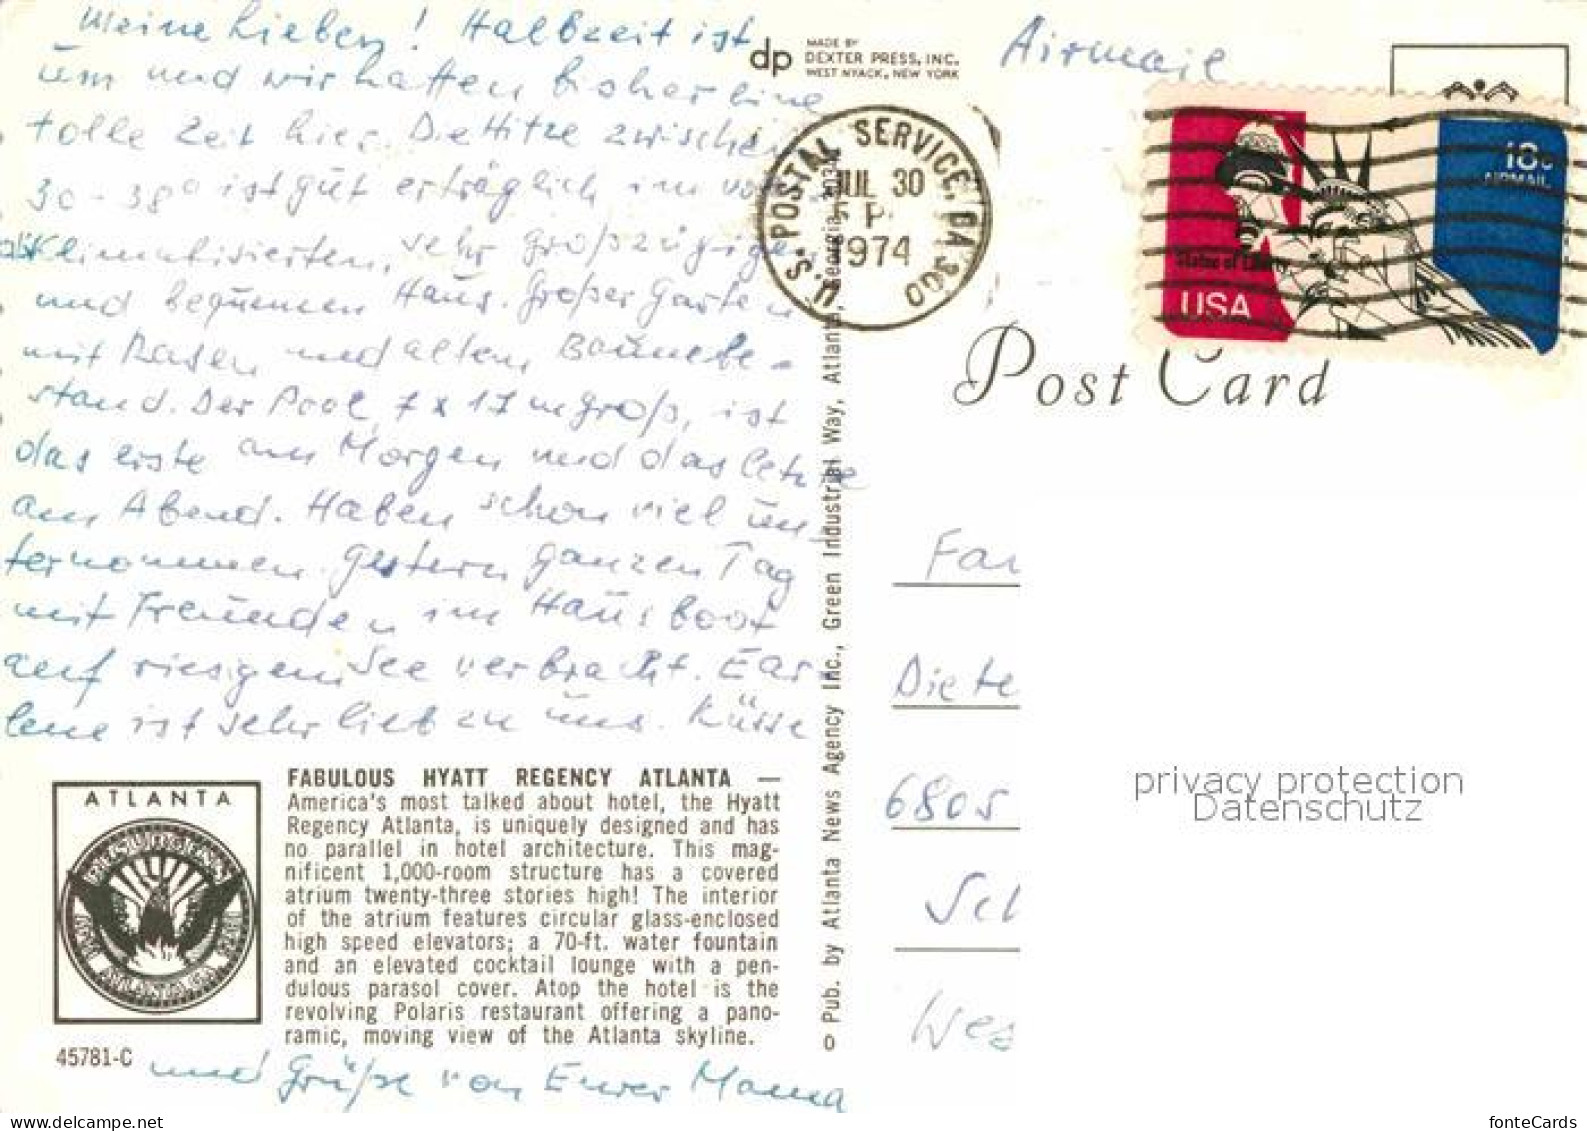 Meine Lieben! Halbzeit ist
um und wir hatten bisher eine
tolle Zeit hier. Die Hitze zwischen
30 - 38° ist gut erträglich im voll
klimatisierten, sehr großzügigen
und bequemen Haus. Großer Garten
mit Rasen und altem Baumbe-
stand. Der Pool, 7 x 17 m groß, ist
das erste am Morgen und das letzte
am Abend. Haben schon viel un-
ternommen. Gestern ganzen Tag
mit Freunden im Hausboot
auf riesigem See verbracht. Ear
lene ist sehr lieb zu uns. Küsse
und Grüße von Eurer Mama
FABULOUS HYATT REGENCY ATLANTA —
America's most talked about hotel, the Hyatt
Regency Atlanta, is uniquely designed and has
no parallel in hotel architecture. This mag-
nificent 1,000-room structure has a covered
atrium twenty-three stories high! The interior
of the atrium features circular glass-enclosed
high speed elevators; a 70-ft. water fountain
and an elevated cocktail lounge with a pen-
dulous parasol cover. Atop the hotel is the
revolving Polaris restaurant offering a pano-
ramic, moving view of the Atlanta skyline.
ATLANTA
RESURGENS
ATLANTA, GA.
45781-C
dp
MADE BY
DEXTER PRESS, INC.
WEST NYACK, NEW YORK
Pub. by Atlanta News Agency Inc., Green Industrial Way, Atlanta, Georgia
U.S. POSTAL SERVICE. GA 300
JUL 30
P
1974
Airmail
18c
AIRMAIL
Statue of Liberty
USA
Post Card
Fa
Diete
6805
Sch
Wes
privacy protection
Datenschutz
fonteCards